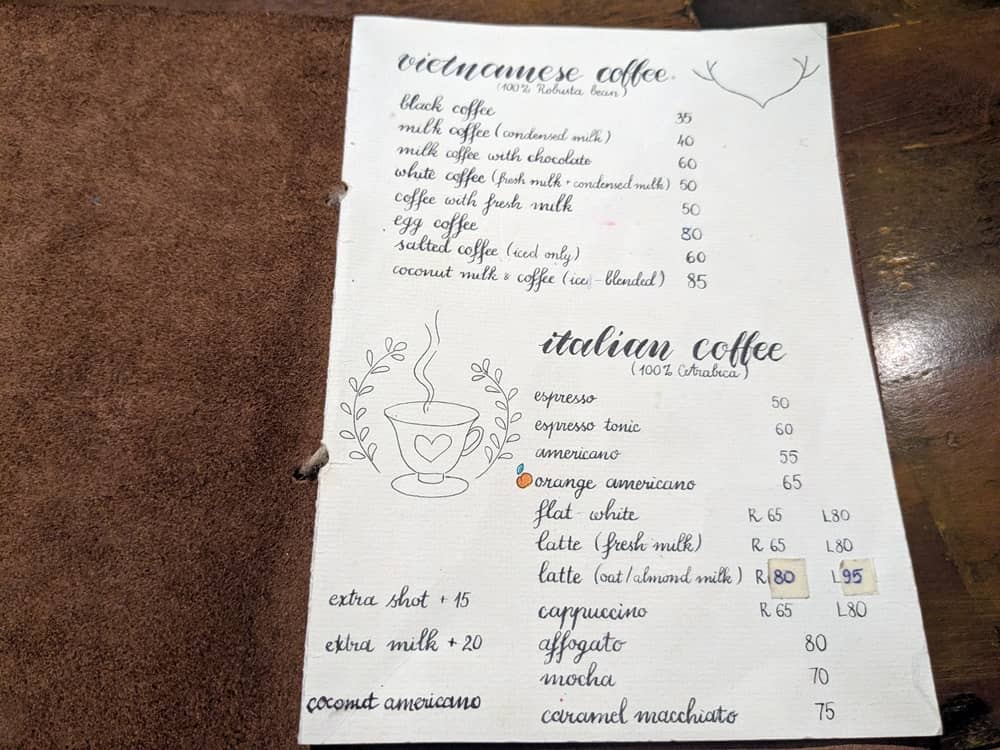 vietnamese coffee
(100% Robusta bean)
black coffee 35
milk coffee (condensed milk) 40
milk coffee with chocolate 60
white coffee (fresh milk + condensed milk) 50
coffee with fresh milk 50
egg coffee 80
salted coffee (iced only) 60
coconut milk & coffee (ice-blended) 85
italian coffee
(100% Arabica)
espresso 50
espresso tonic 60
americano 55
orange americano 65
flat white R 65 L 80
latte (fresh milk) R 65 L 80
latte (oat/almond milk) R 80 L 95
cappuccino R 65 L 80
affogato 80
mocha 70
caramel macchiato 75
extra shot + 15
extra milk + 20
coconut americano